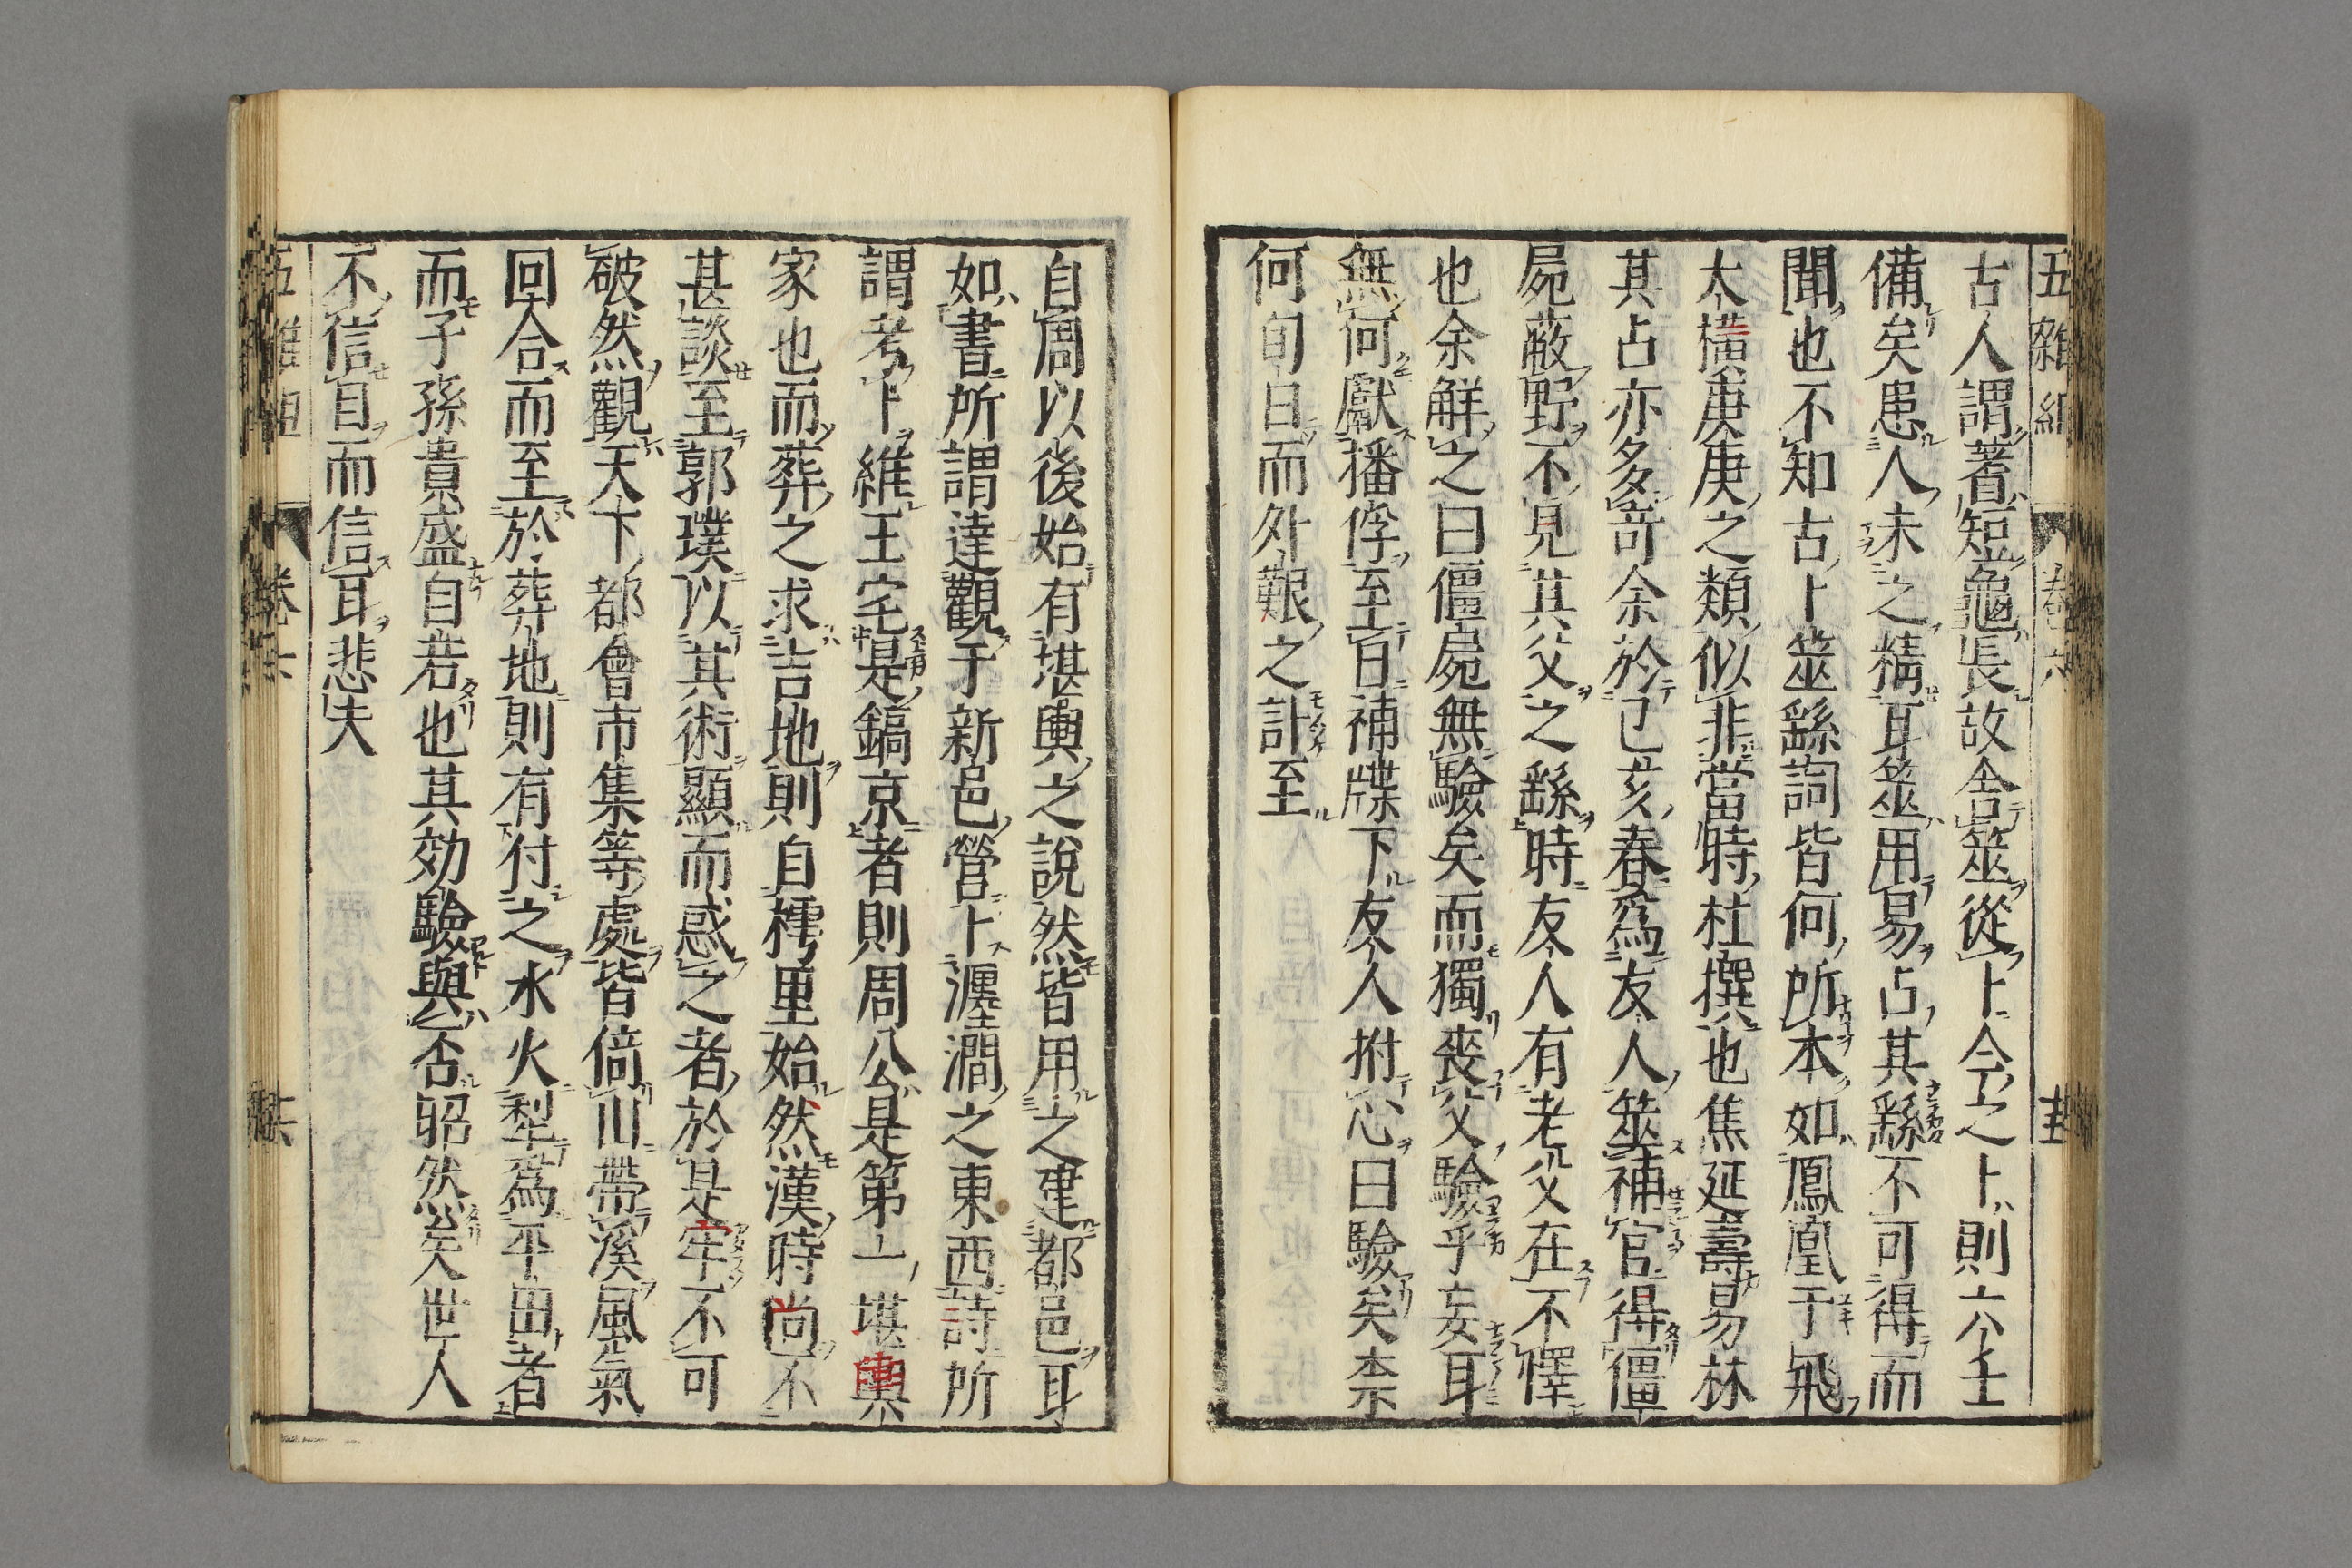 五雜組 卷六
古人謂蓍短龜長故舍筮從卜今之卜則六壬
備矣患人未之精耳筮用易占其繇不可得而
聞也不知古卜筮繇詞皆何所本如鳳凰于飛
大橫庚庚之類似非當時杜撰也焦延壽易林
其占亦多奇余於己亥春為友人筮補官得僵
屍蔽野不見其父之繇時友人有老父在不懌
也余解之曰僵屍無驗矣而獨喪父驗乎妄耳
無何獻播俘至百補牒下友人拊心曰驗矣柰
何旬日而外艱之訃至
自周以後始有堪輿之說然皆用之建都邑耳
如書所謂達觀于新邑營卜瀍澗之東西詩所
謂考卜維王宅是鎬京者則周公是第一堪輿
家也而葬之求吉地則自樗里始然漢時尚不
甚談至郭璞以其術顯而惑之者於是牢不可
破然觀天下都會市集等處皆倚山帶溪風氣
回合而至於葬地則有付之水火犁為平田者
而子孫貴盛自若也其効驗與否昭然矣世人
不信目而信耳悲夫
卷六